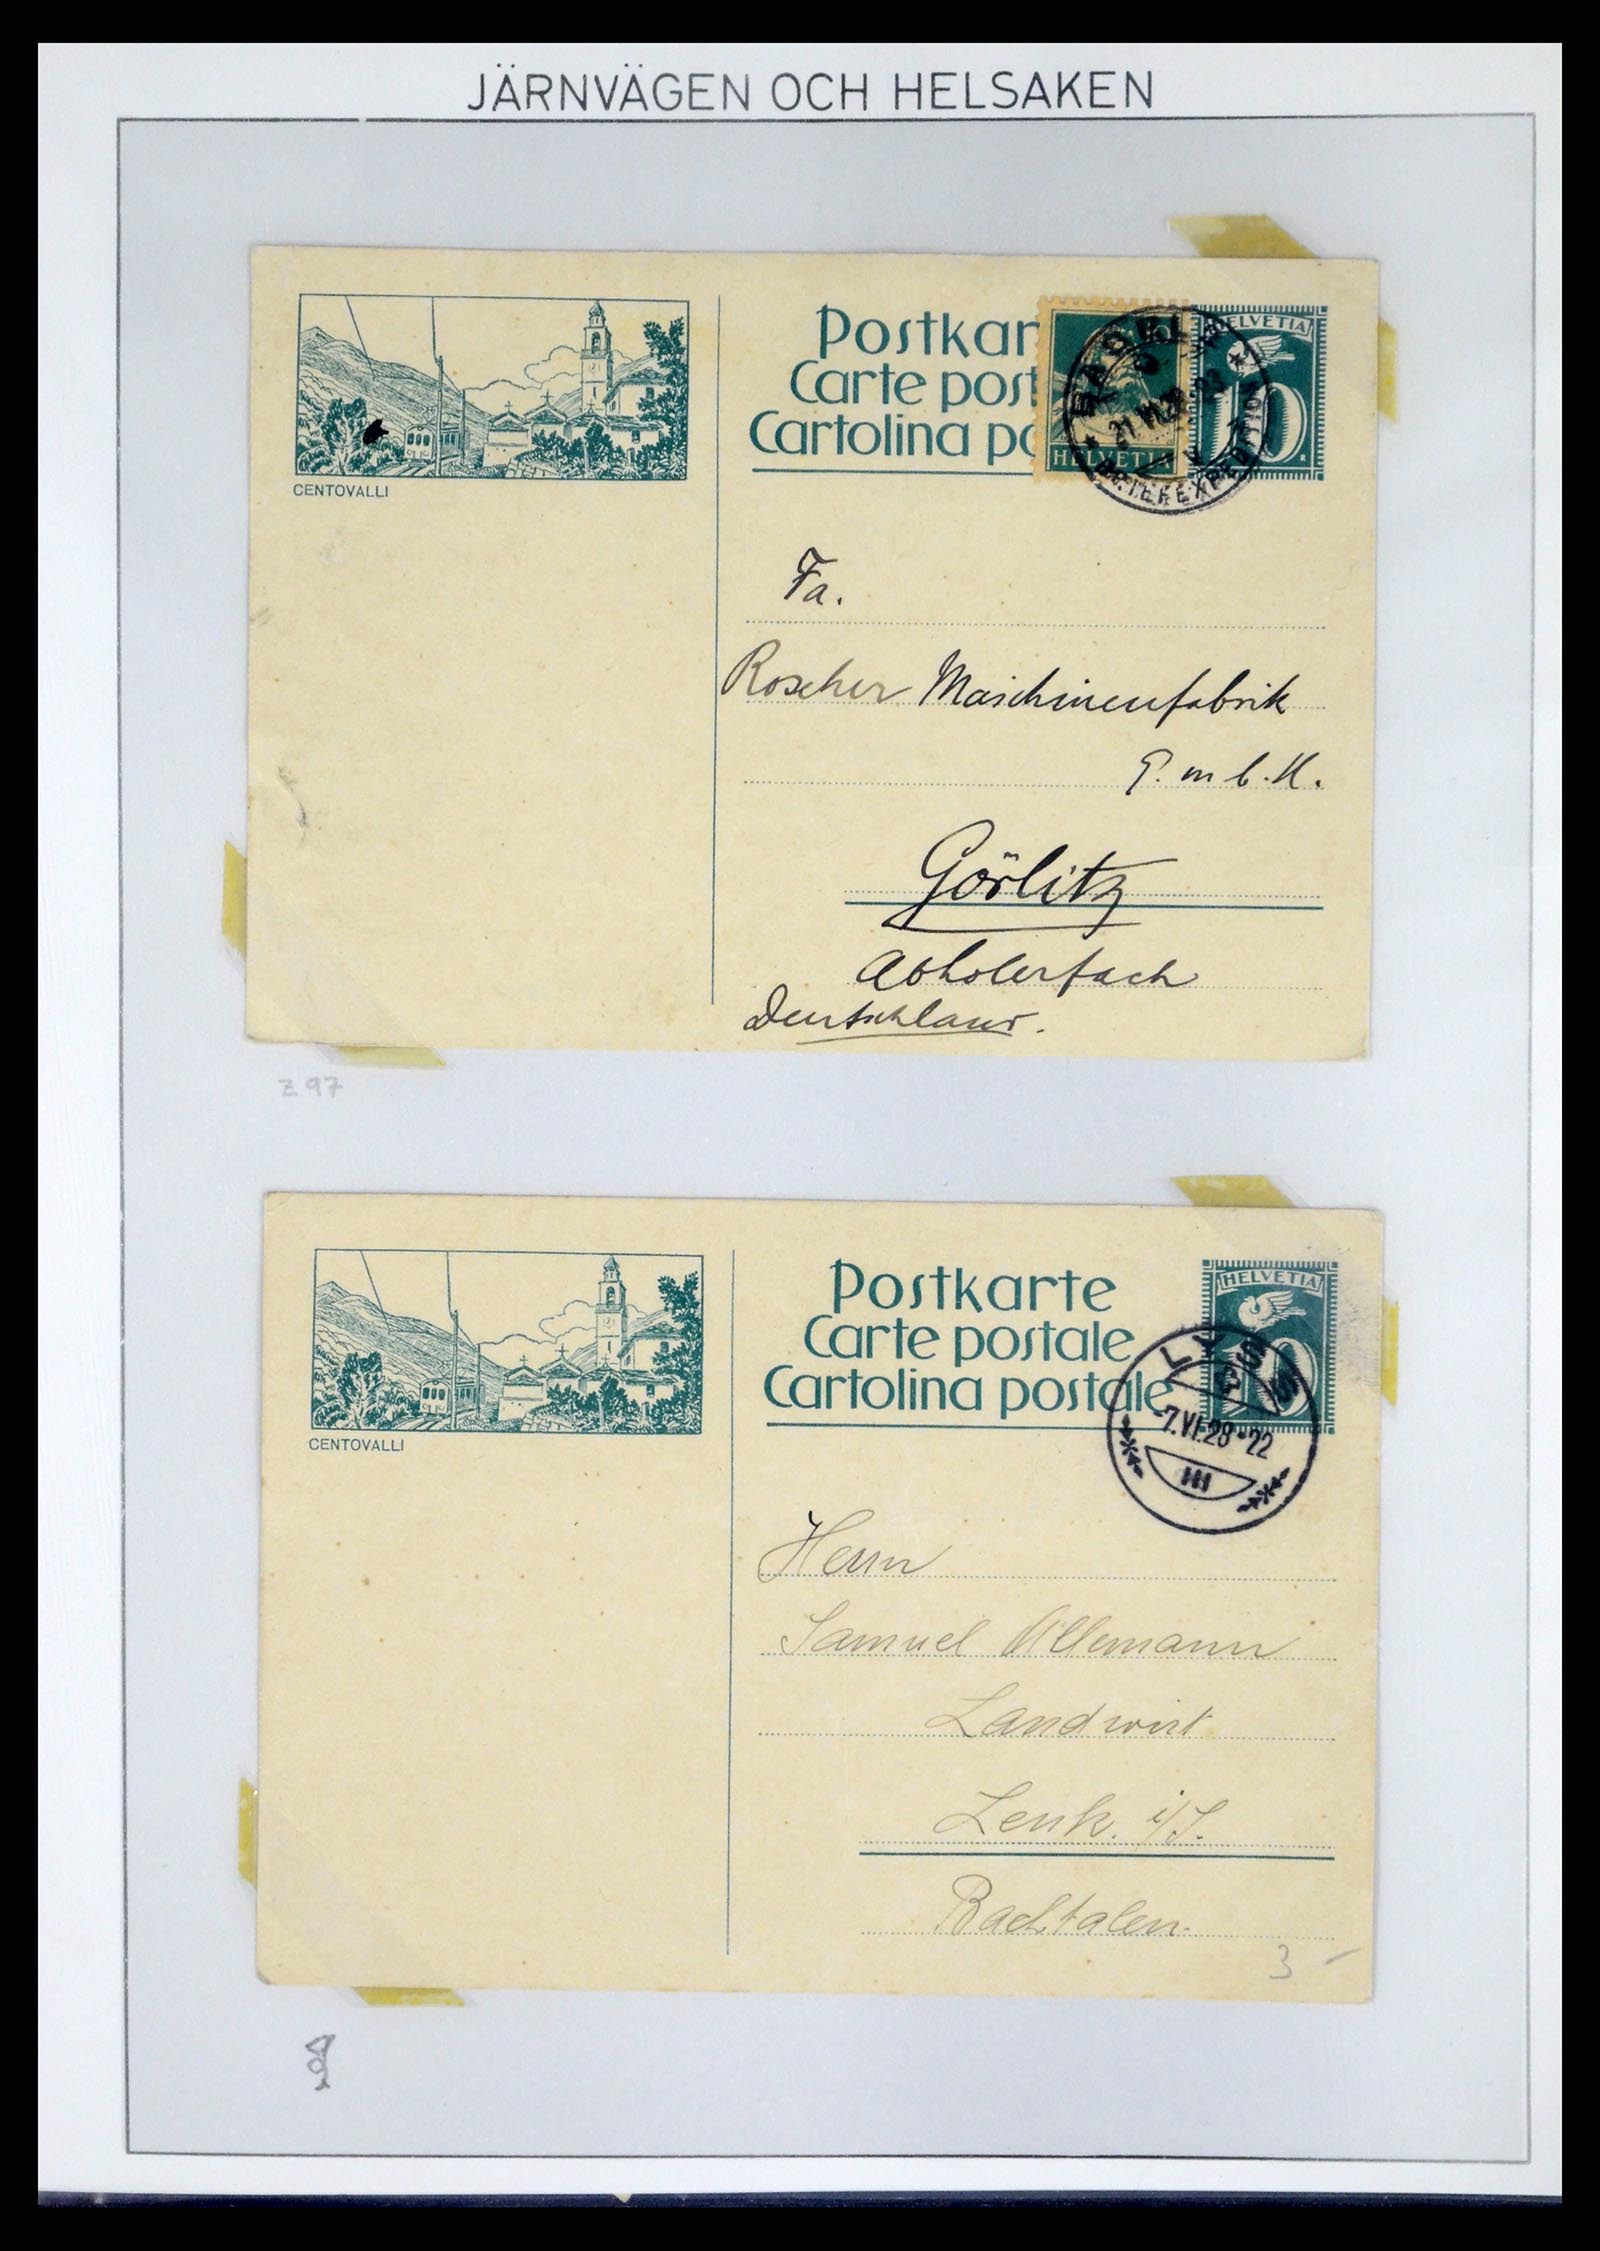 JÄRNVÄGEN OCH HELSAKEN
CENTOVALLI
Postkar
Carte post
Cartolina po
HELVETIA
HELVETIA
10
BRIEFEXPEDITION
Fa.
Roscher Maschinenfabrik
G. m b. H.
Görlitz
Abholerfach
Deutschland.
Z 97
CENTOVALLI
Postkarte
Carte postale
Cartolina postale
HELVETIA
10
LYSS
-7.VI.28-22
III
Herrn
Samuel Allemann
Landwirt
Lenk. i/S.
Bachtalen.
3 -